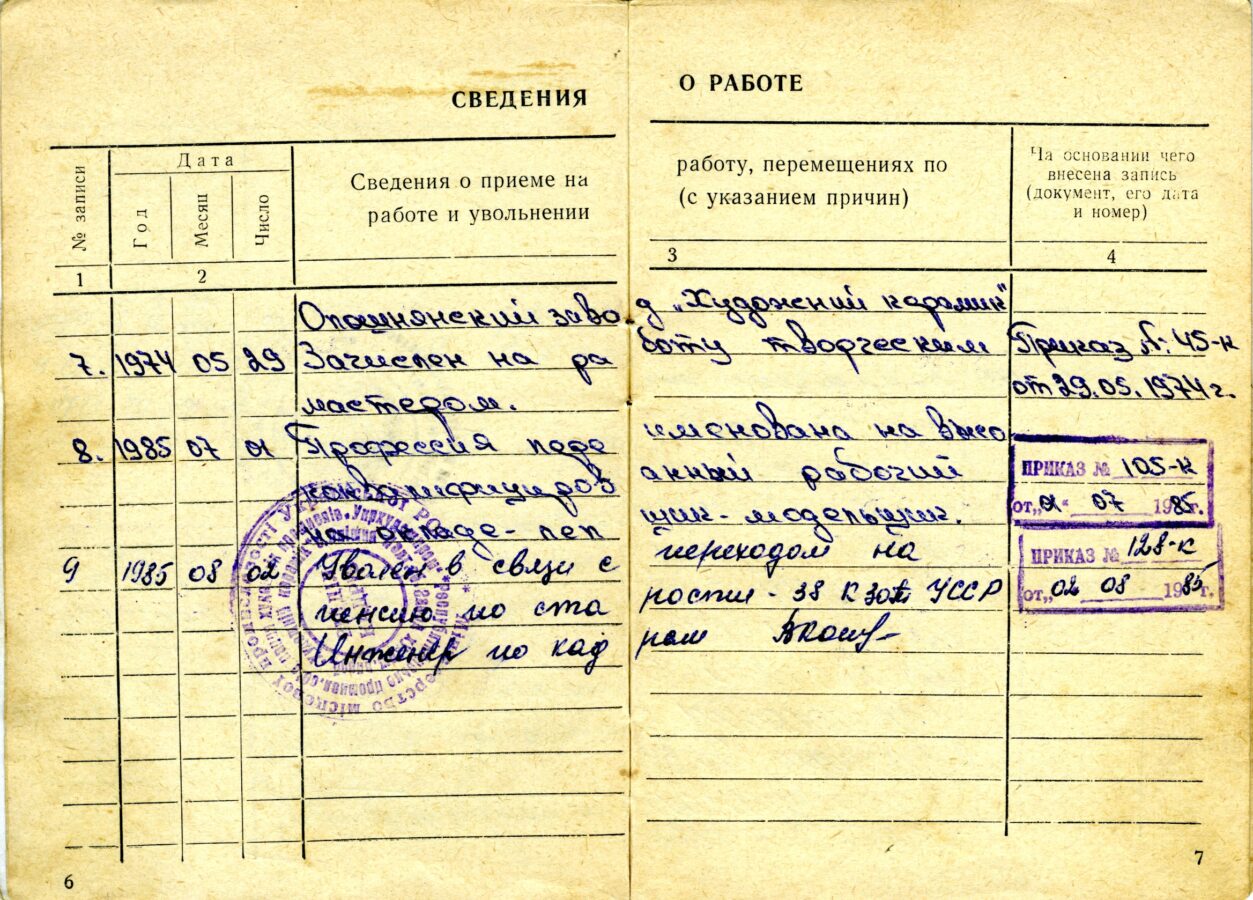 СВЕДЕНИЯ О РАБОТЕ
№ записи
Дата
Год
Месяц
Число
Сведения о приеме на работу, перемещениях по
работе и увольнении (с указанием причин)
На основании чего
внесена запись
(документ, его дата
и номер)
1 2 3 4
Опошнянский завод „Художний керамик"
7. 1974 05 29 Зачислен на работу творческим Приказ № 45-к
мастером. от 29.05.1974 г.
8. 1985 07 01 Профессия переименована на высо
ПРИКАЗ № 105-к
коквалифицированный рабочий
от „01" 07 1985г.
на окладе-лепщик-модельщик.
9 1985 08 02 Уволен в связи с переходом на
ПРИКАЗ № 128-к
пенсию по старости - 38 КЗоТ УССР
от „02 08 1985г.
Инженер по кадрам
6
7